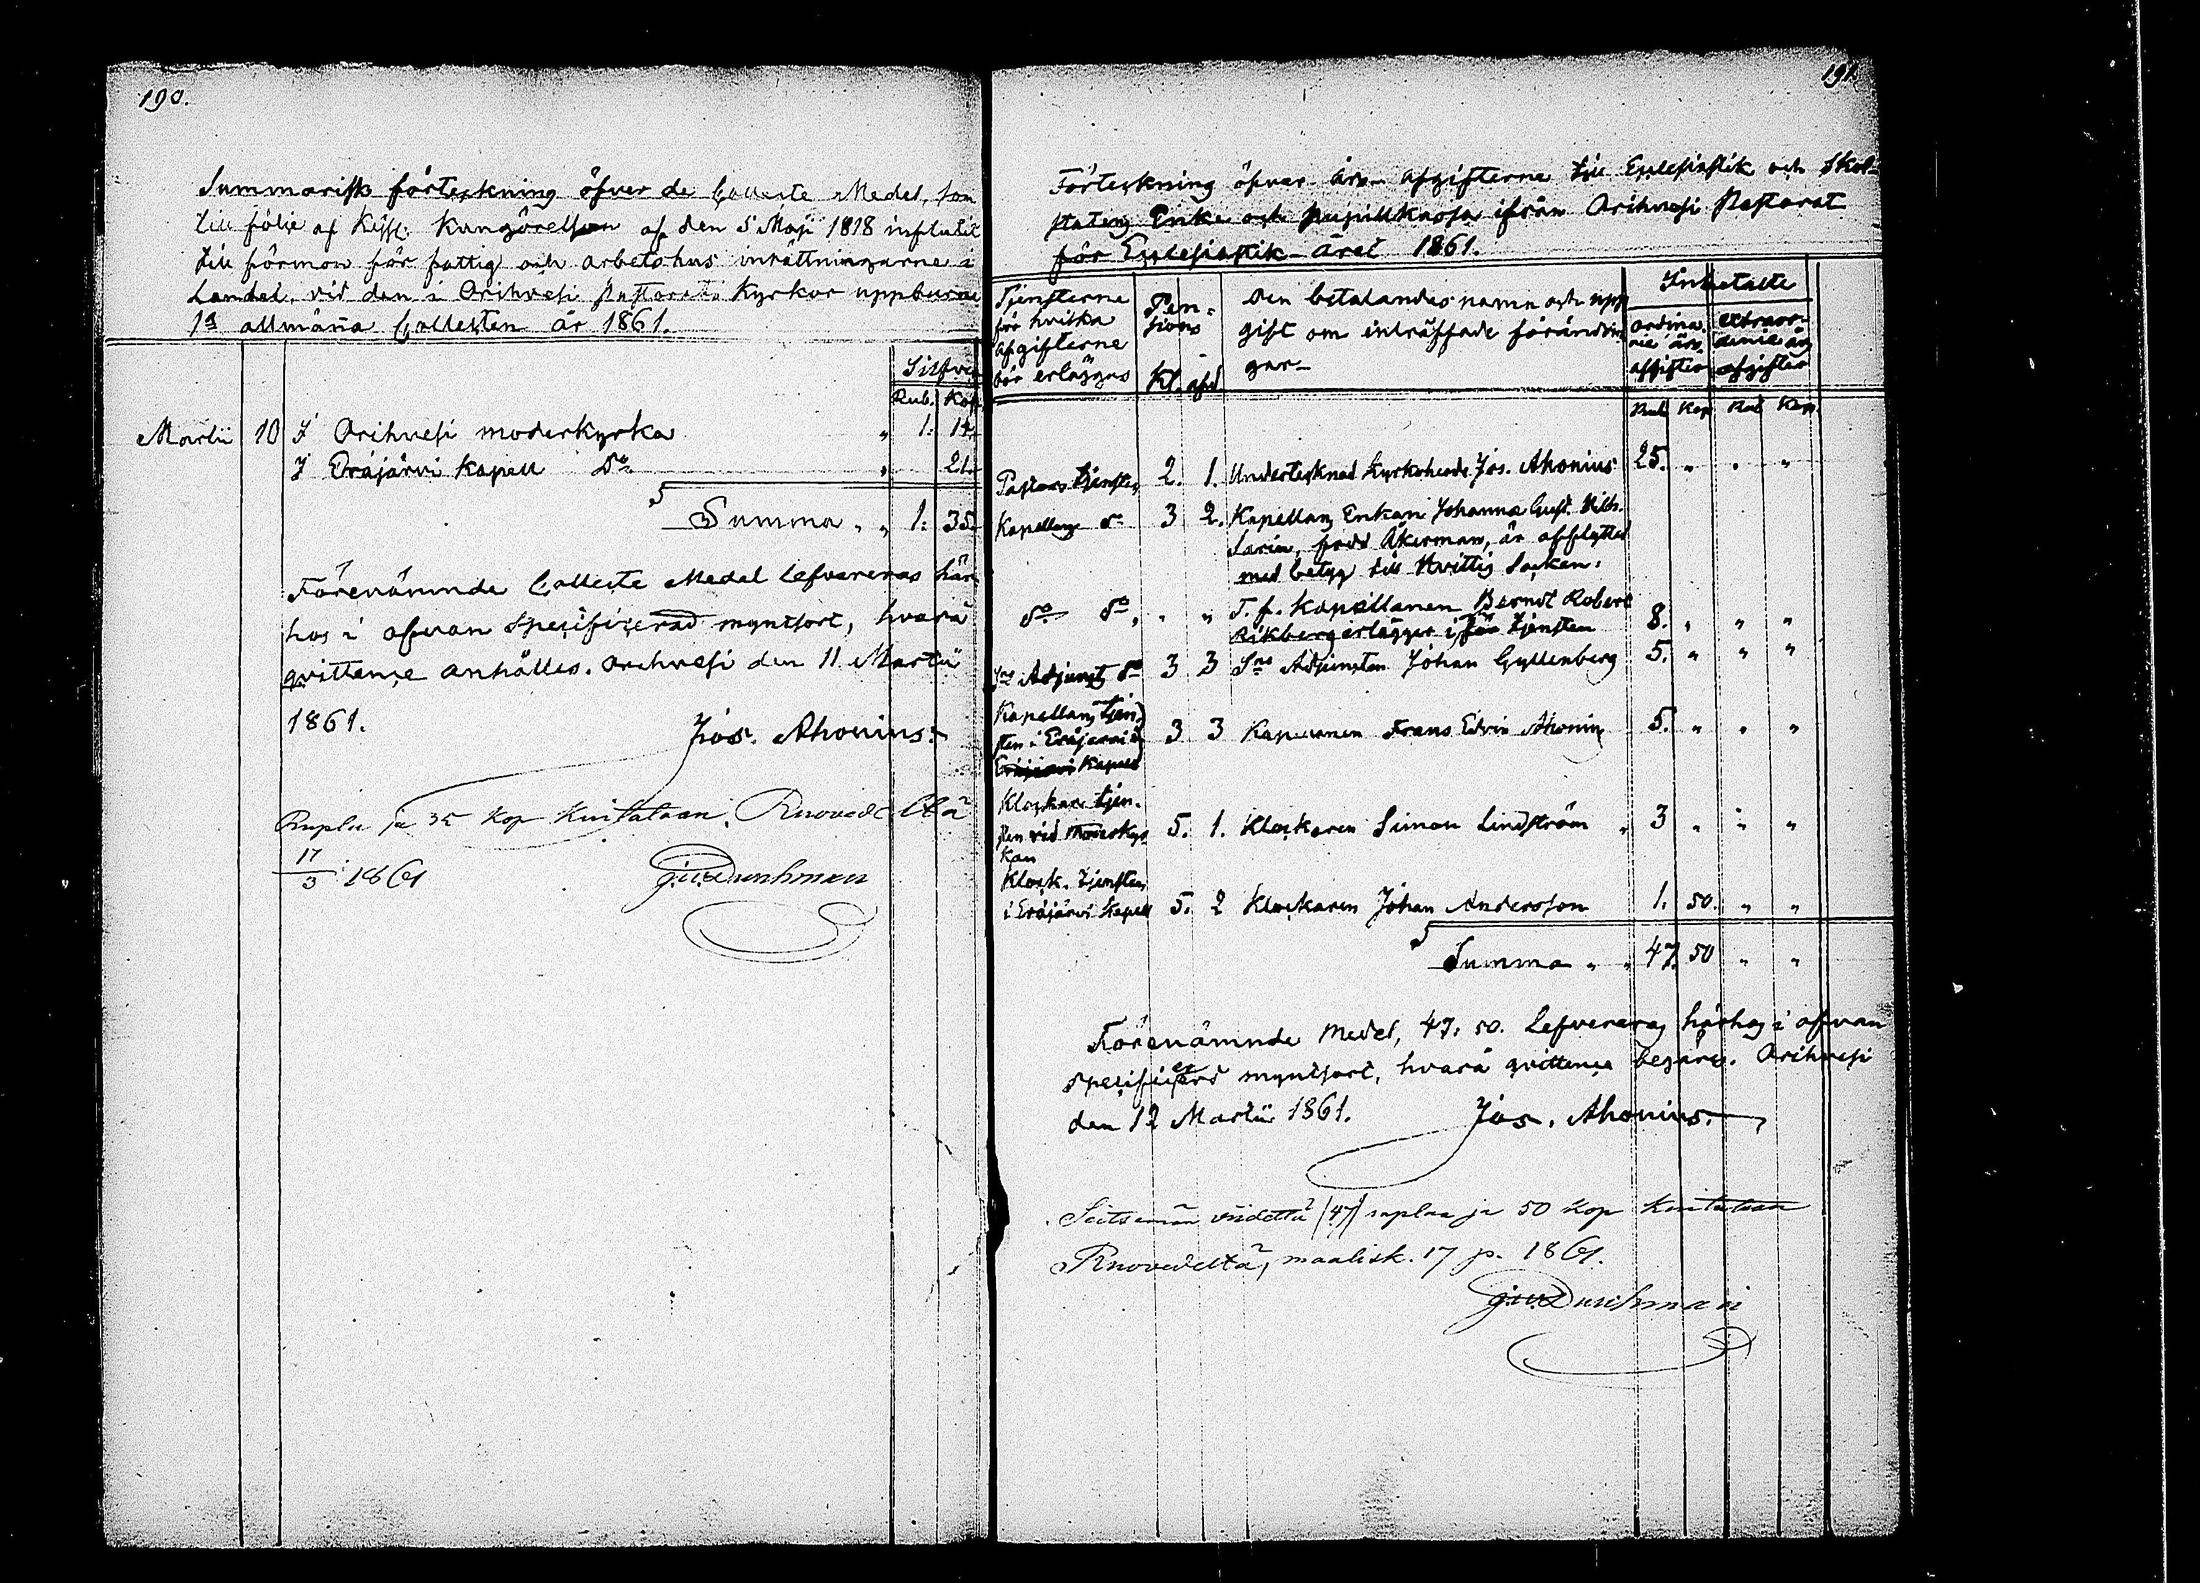 190.
Summarisk förteckning öfver de Collecte Medel, som
till följe af Kejsl. Kungörelsen af den 5 Maji 1818 influtit
till förmon för fattig och arbetshus inrättningarne i
Landet, vid den i Orihvesi Pastorats Kyrkor uppburne
1a allmäna Collecten år 1861.
Silfver
Rub. Kop
Martii 10 I Orihvesi moderkyrka " 1. 14.
I Eräjärvi Kapell do " 21.
Summa " " 1. 35.
Förenämnde Collecte Medel lefvereras här
hos i ofvan specificerad myntsort, hvarå
qvittence anhålles. Orihvesi den 11 Martii
1861.
Jos. Ahonius.
Rupla ja 35 Kop Kuitataan. Ruovedeltä
17/3 1861
Durchman
191.
Förteckning öfver års afgifterne till Ecclesiastik och Skol-
statens Enke och pupillkassa ifrån Orihvesi Pastorat
för Ecclesiastik-året 1861.
Tjensterne för hvilka afgifterne bör erläggas
Pensions Kl. afd
Den betalandes namn och upp
gift om inträffade förändrin
gar
Inbetalte
ordinarie års afgifter
extraordinarie års afgifter
Rub Kop Rub Kop.
Pastors tjensten 2. 1. Undertecknad Kyrkoherde Jos. Ahonius 25. " " "
Kapellans do 3 2. Kapellans Enkan Johanna Gust. Vilh.
Sarin, född Åkerman, är afflyttad
med betyg till Hvittis Socken.
do do " " T. f. Kapellanen Berndt Robert
Rikberg erlägger för tjensten 8. " " "
Adjuncts do 3 3 Adjuncten Johan Gyllenberg 5. " " "
Kapellans tjen-
sten i Eräjärvi
Kapell 3 3 Kapellanen Frans Edvin Ahonius 5. " " "
Klockare tjen-
sten vid moderkyr-
kan 5. 1. Klockaren Simon Lindström " 3 " " "
Klock. tjensten
i Eräjärvi Kapell 5. 2 Klockaren Johan Andersson 1. 50. " "
Summa " " 47. 50 " "
Förenämnde Medel, 47. 50. Lefvereras härhos i ofvan
specificerad myntsort, hvarå qvittence begäres. Orihvesi
den 12 Martii 1861.
Jos. Ahonius.
Seitsemän viidettä (47) ruplaa ja 50 Kop kuitataan
Ruovedeltä, maalisk. 17 p. 1861.
Durchman